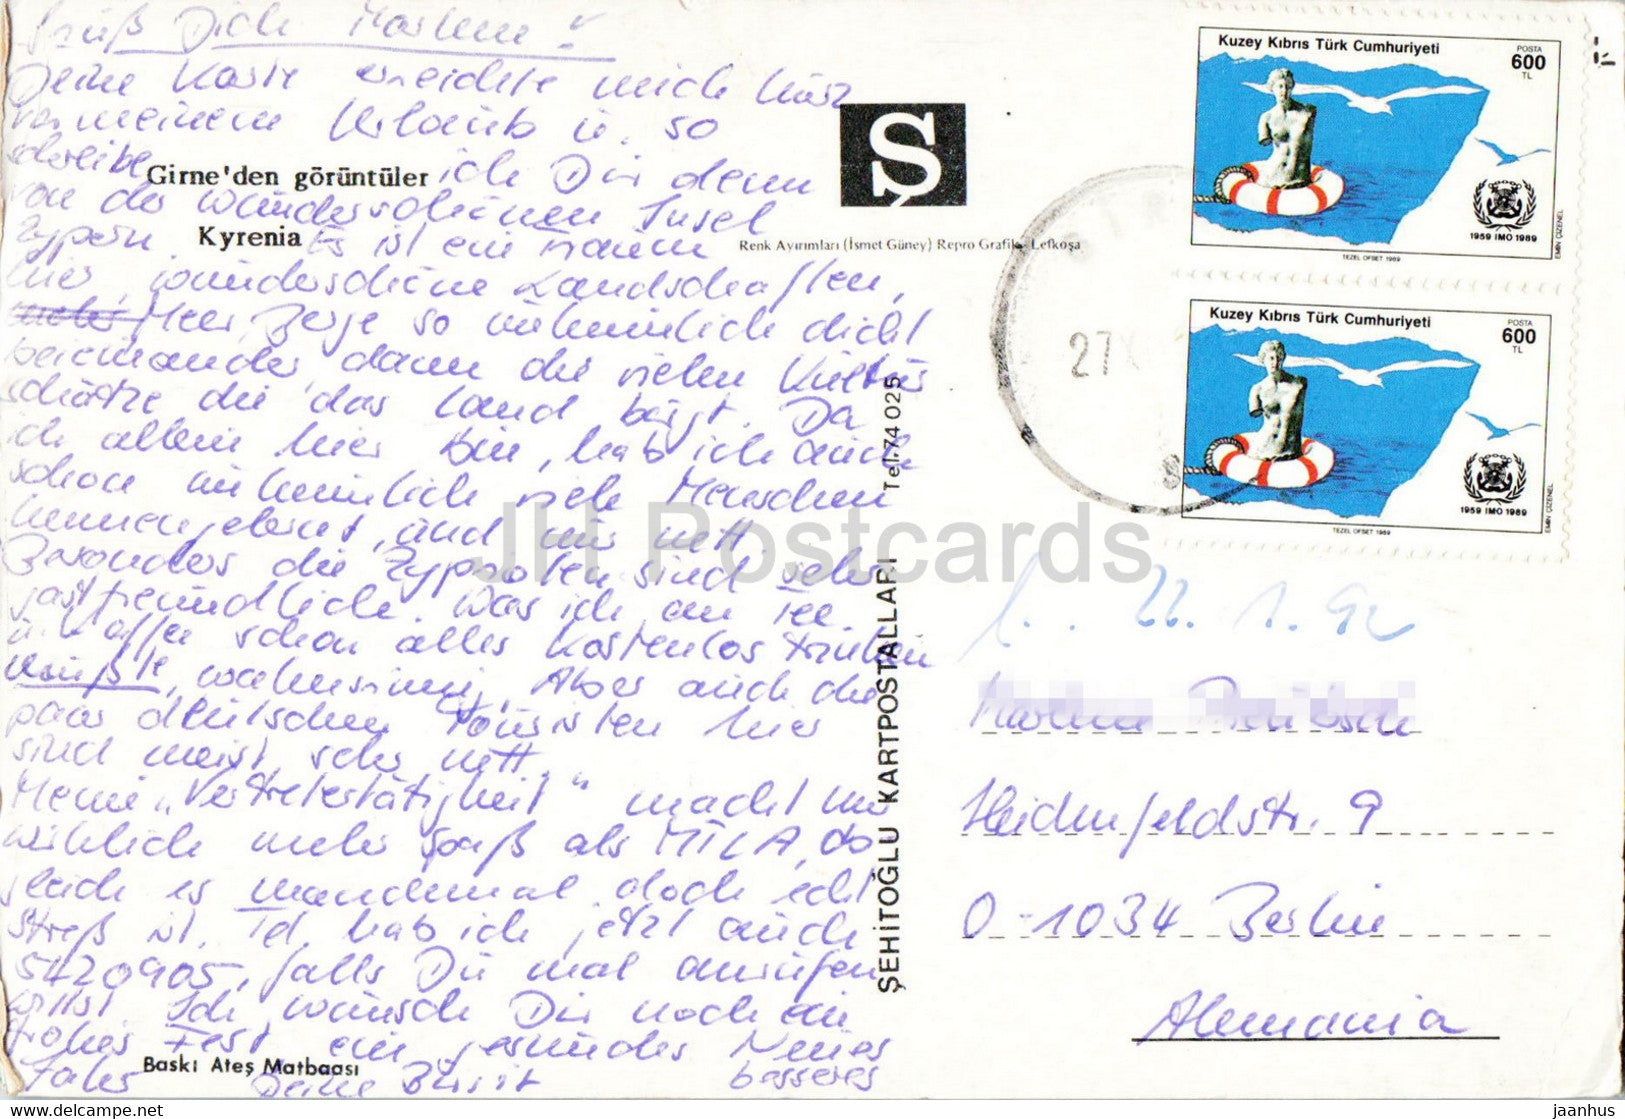 Grüß Dich Marlene!
Deine Karte erreichte mich kurz
vor meinem Urlaub u. so
schreibe ich Dir denn
von der wunderschönen Insel
Zypern Es ist ein Traum
hier, wunderschöne Landschaften,
Meer, Berge so unheimlich dicht
beieinander, dann die vielen Kultur
schätze die das Land birgt. Da
ich allein hier bin, hab ich auch
schon unheimlich viele Menschen
kennengelernt, und nur nett.
Besonders die Zyprioten sind sehr
gastfreundlich. Was ich an Tee
u. Kaffee schon alles kostenlos trinken
mußte, wahnsinnig. Aber auch die
paar deutschen Touristen hier
sind meist sehr nett.
Meine „Vertretertätigkeit" macht mir
wirklich mehr Spaß als MILA, ob-
gleich es manchmal doch echt
Streß ist. Tel. hab ich jetzt auch
5420905, falls Du mal anrufen
willst Ich wünsch Dir noch ein
frohes Fest, ein gesundes Neues
Jahr Deine Birgit besseres
Girne'den görüntüler
Kyrenia
Ş
Renk Ayırımları (İsmet Güney) Repro Grafik - Lefkoşa
Baskı Ateş Matbaası
ŞEHİTOĞLU KARTPOSTALLARI Tel:74 025
Kuzey Kıbrıs Türk Cumhuriyeti
POSTA
600
TL
1959 IMO 1989
TEZEL OFSET 1989
EMİN ÇİZENEL
Kuzey Kıbrıs Türk Cumhuriyeti
POSTA
600
TL
1959 IMO 1989
TEZEL OFSET 1989
EMİN ÇİZENEL
27
22. 1. 92
Heidenfeldstr. 9
O-1034 Berlin
Alemania
JH Postcards
delcampe.net
jaanhus